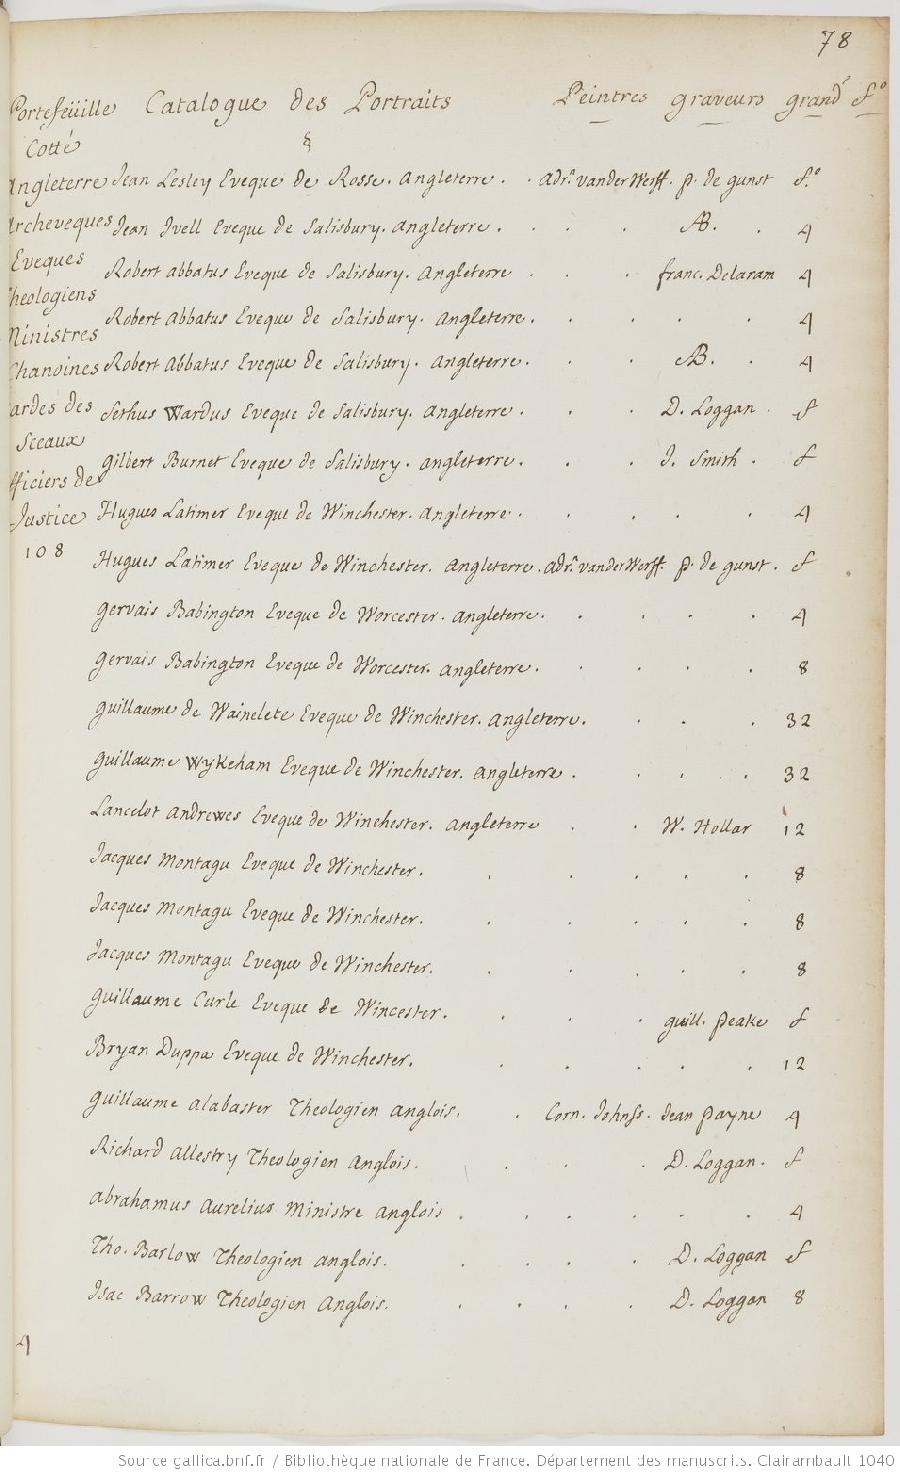 78
Portefeüille Catalogue des Portraits Peintres graveurs grandr fo
Cotté §
Angleterre Jean Lesley Eveque de Rosse. Angleterre. . adr. vander Werff. p. de gunst f.o
Archeveques Jean Ivell Eveque de Salisbury. Angleterre. . . . AB. . 4
Eveques Robert abbatus Eveque de Salisbury. Angleterre . . . franc. Delaram 4
Theologiens
Ministres Robert Abbatus Eveque de Salisbury. Angleterre. . . . . 4
Chanoines Robert Abbatus Eveque de Salisbury. Angleterre. . . AB. . 4
Gardes des Sethus Wardus Eveque de Salisbury. Angleterre. . . D. Loggan . f
Sceaux
Officiers de Gilbert Burnet Eveque de Salisbury. angleterre. . . J. Smith . f
Justice Hugues Latimer Eveque de Winchester. Angleterre. . . . . 4
108
Hugues Latimer Eveque de Winchester. Angleterre. adr. vander Werff p. de gunst. f
gervais Babington Eveque de Worcester. Angleterre. . . . . 4
gervais Babington Eveque de Worcester. Angleterre. . . . . 8
guillaume de Wainelete Eveque de Winchester. Angleterre. . . . 32
guillaume Wykeham Eveque de Winchester. Angleterre . . . . 32
Lancelot Andrewes Eveque de Winchester. Angleterre . . W. Hollar 12
Jacques Montagu Eveque de Winchester. . . . . . 8
Jacques Montagu Eveque de Winchester. . . . . . 8
Jacques Montagu Eveque de Winchester. . . . . . 8
guillaume Curle Eveque de Wincester. . . . guill. peake f
Bryan Duppa Eveque de Winchester. . . . . . 12
guillaume alabaster Theologien anglois. . Corn. Johnss. Jean payne 4
Richard Allestry Theologien Anglois. . . . D. Loggan. f
abrahamus Aurelius Ministre anglois . . . . . . 4
Tho. Barlow Theologien anglois. . . . . D. Loggan f
Isac Barrow Theologien Anglois. . . . . D. Loggan 8
4
Source gallica.bnf.fr / Bibliothèque nationale de France. Département des manuscrits. Clairambault 1040